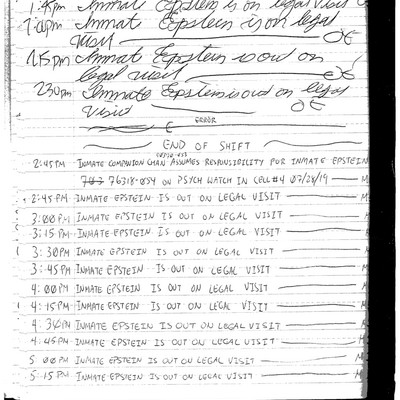 Inmat Epstein is on legal visit
Inmat Epstein is on legal
visit OE
1:15pm Inmat Epstein is out on
legal visit OE
2:30pm Inmate Epstein is out on legal
visit OE
ERROR
END OF SHIFT
2:45PM INMATE COMPANION CHAN ASSUMES RESPONSIBILITY FOR INMATE EPSTEIN
76318-054 ON PSYCH WATCH IN CELL #4 07/28/19
2:45 PM INMATE EPSTEIN IS OUT ON LEGAL VISIT
3:00 PM INMATE EPSTEIN IS OUT ON LEGAL VISIT
3:15 PM INMATE EPSTEIN IS OUT ON LEGAL VISIT
3:30PM INMATE EPSTEIN IS OUT ON LEGAL VISIT
3:45PM INMATE EPSTEIN IS OUT ON LEGAL VISIT
4:00PM INMATE EPSTEIN IS OUT ON LEGAL VISIT
4:15PM INMATE EPSTEIN IS OUT ON LEGAL VISIT
4:30PM INMATE EPSTEIN IS OUT ON LEGAL VISIT
4:45PM INMATE EPSTEIN IS OUT ON LEGAL VISIT
5:00PM INMATE EPSTEIN IS OUT ON LEGAL VISIT
5:15PM INMATE EPSTEIN IS OUT ON LEGAL VISIT